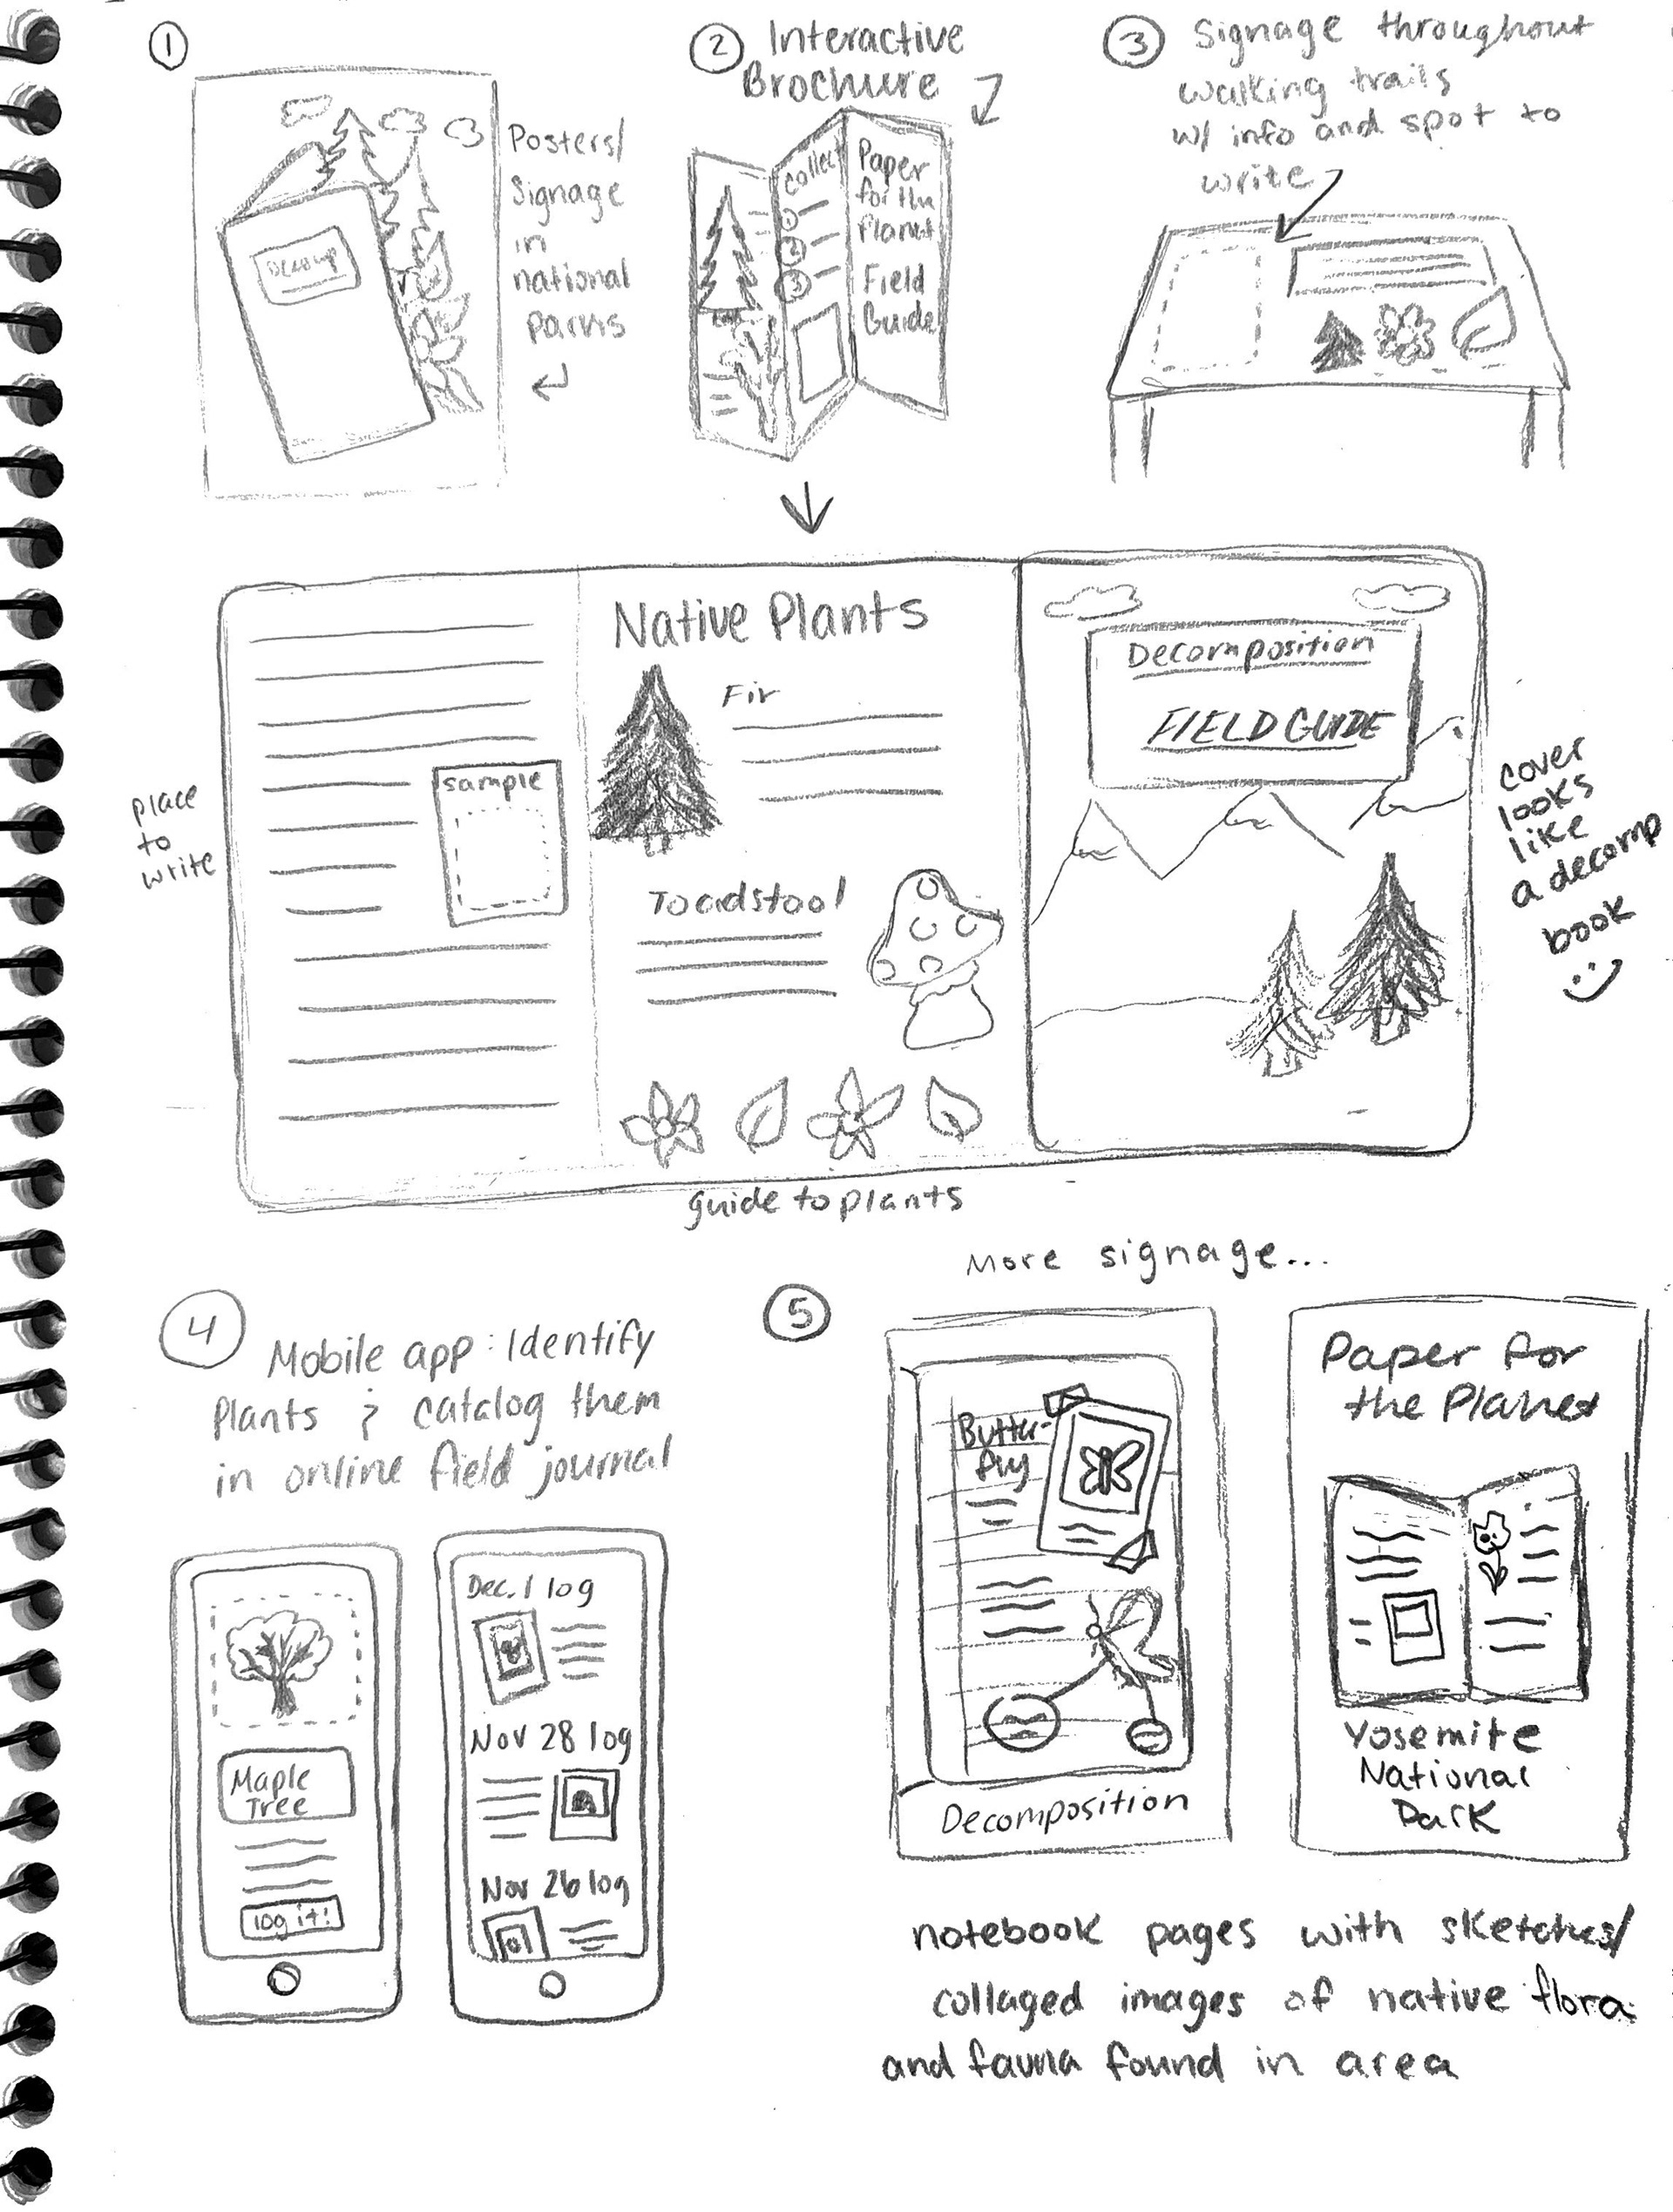 ①
Posters/
Signage
in
national
parks
Decomp
② Interactive
Brochure
Collect
①
②
③
Paper
for the
Planet
Field
Guide
③ Signage throughout
walking trails
w/ info and spot to
write
Native Plants
Fir
Toadstool
sample
place
to
write
Decomposition
FIELD GUIDE
cover
looks
like
a decomp
book
:)
guide to plants
④ Mobile app: Identify
Plants & catalog them
in online field journal
Maple
Tree
log it!
Dec. 1 log
Nov 28 log
Nov 26 log
More signage...
⑤
Butter-
fly
Decomposition
Paper for
the Planet
Yosemite
National
Park
notebook pages with sketches/
collaged images of native flora
and fauna found in area